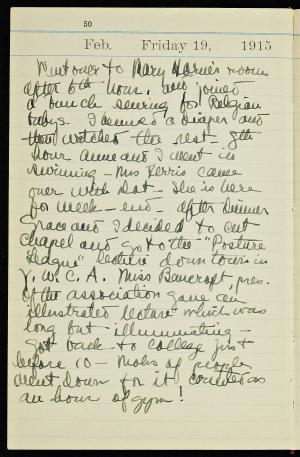 50
Feb. Friday 19, 1915
Went over to Mary Horne's room
after 6th hour, and joined
a bunch sewing for Belgian
babys. I hemmed a diaper and
then watched the rest - 8th
hour Anne and I went in
swimming - Mrs Ferris came
over with Dot - She is here
for week-end. After dinner
Grace and I decided to cut
chapel and go to the "Posture
League" lecture down town in
Y.W.C.A. Miss Bancroft, pres.
of the association gave an
illustrated lecture which was
long but illuminating -
Got back to college just
before 10 - Mobs of people
went down for it counted as
an hour of gym!